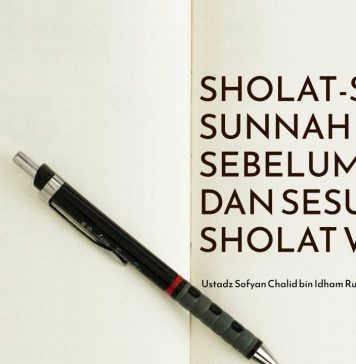 SHOLAT-S
SUNNAH
SEBELUM
DAN SESU
SHOLAT W
Ustadz Sofyan Chalid bin Idham Ru